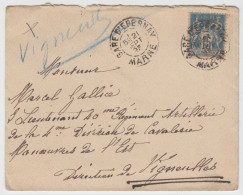 Vigneulles
GARE D'EPERNAY
MARNE
21
Monsieur
Marcel Gallice
S/Lieutenant 40me Régiment Artillerie
de la 4me Division de Cavalerie
Manoeuvres de l'Est
Direction de Vigneulles